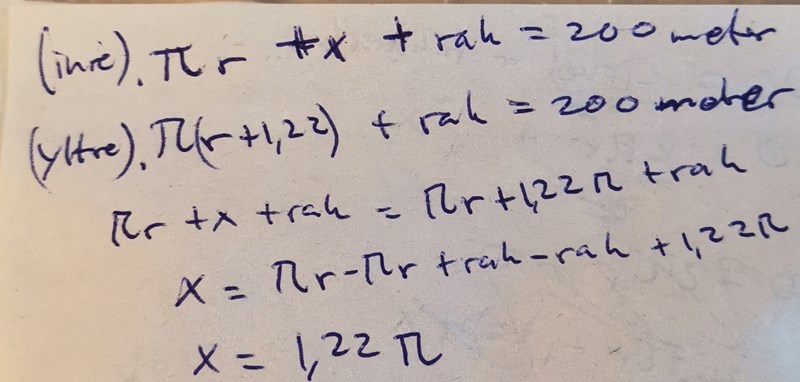 (inre). πr + x + rak = 200 meter
(yttre). π(r+1,22) + rak = 200 meter
πr + x + rak = πr + 1,22π + rak
x = πr - πr + rak - rak + 1,22π
x = 1,22 π